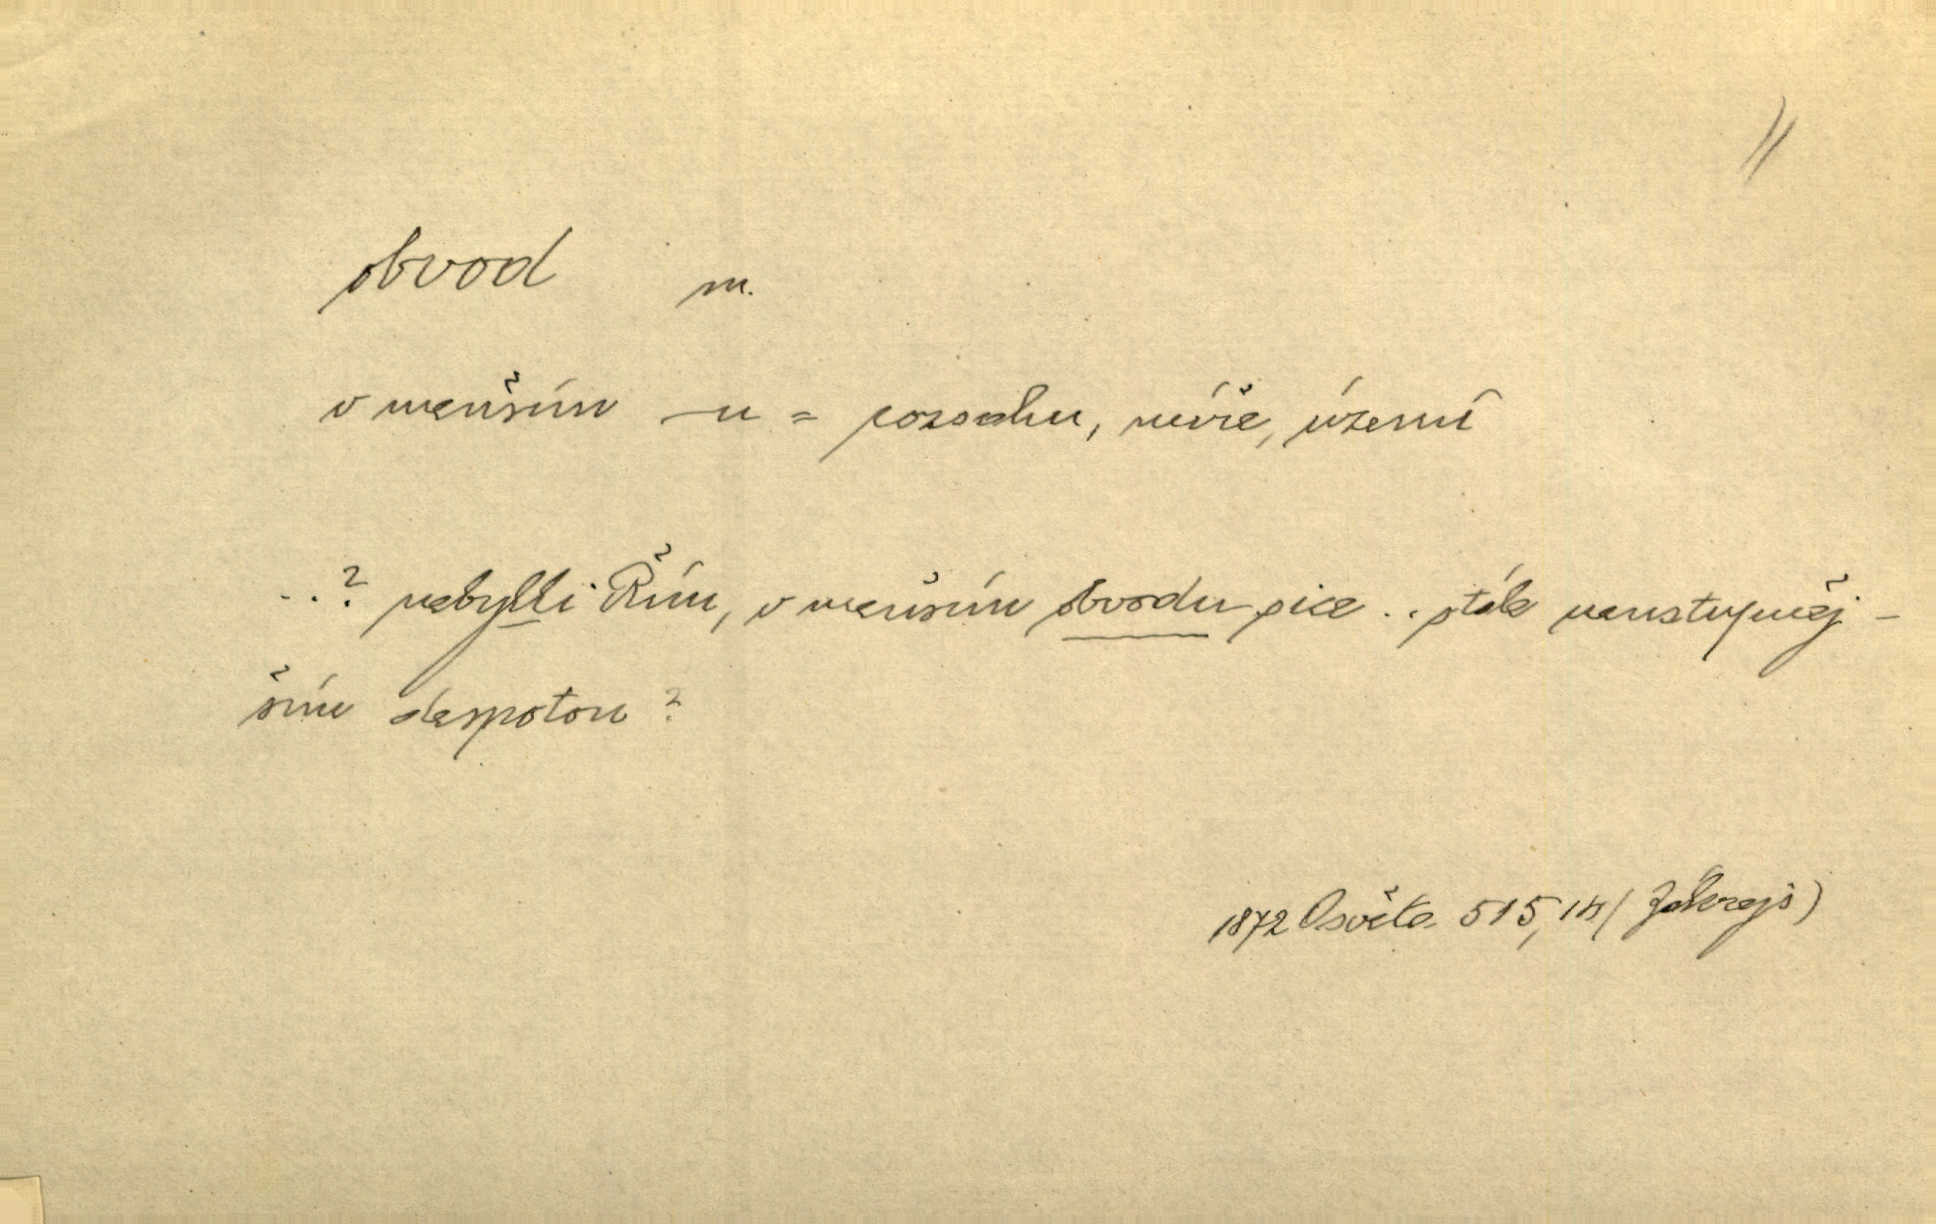 //
obvod m.
v menším -u = rozsahu, míře, území
..? nebylli Řím, v menším obvodu sice .. však neústupněj-
ším despotou?
1872 Osvěta 515, 14 (Zákrejs)